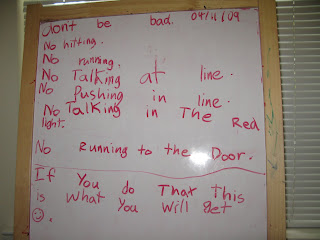 dont be bad. 04/11/09
No hitting.
No running.
No Talking at line.
No Pushing in line.
No Talking in The Red
light.
No Running to the Door.
If You do That This
is What You Will get
☹.